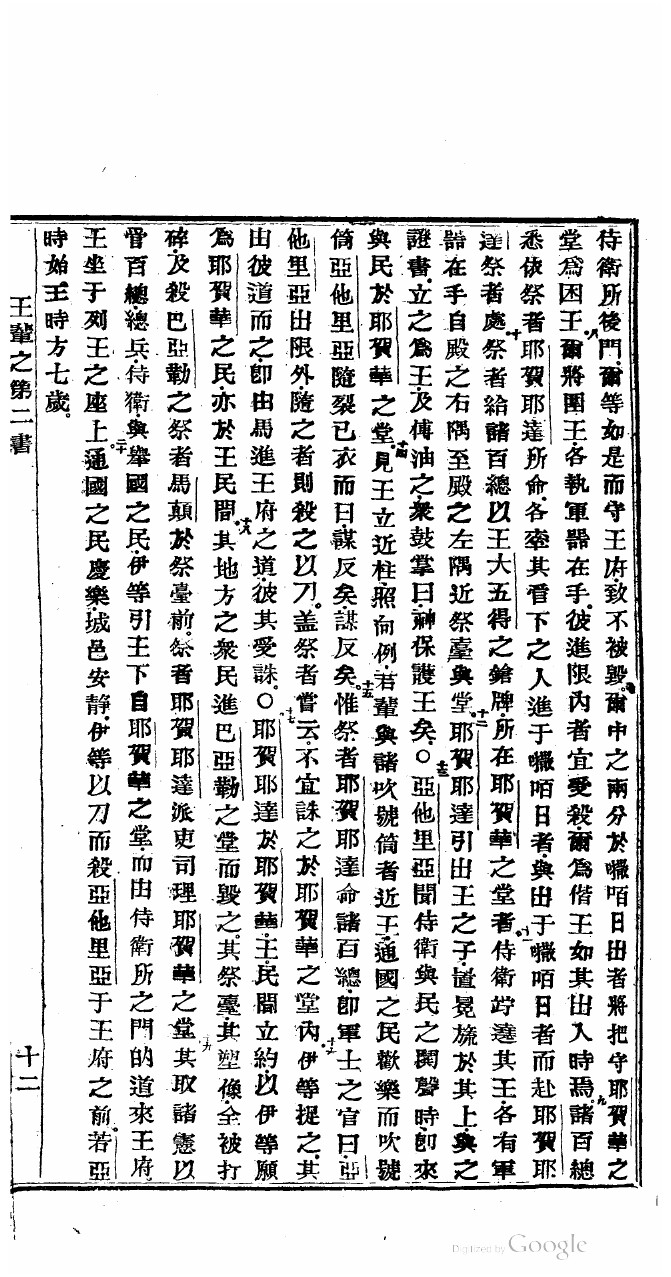 待衛所後門爾等如是而守王府致不被毀七爾中之兩分於嚈哂日出者將把守耶賀華之
堂爲困王八爾將團王各執軍器在手彼進限內者宜受殺爾爲偕王如其出入時焉九諸百總
悉依祭者耶賀耶達所命各牽其管下之人進于嚈哂日者與出于嚈哂日者而赴耶賀耶
達祭者處十祭者給諸百總以王大五得之鎗牌所在耶賀華之堂者十一侍衛竚遶其王各有軍
器在手自殿之右隅至殿之左隅近祭臺與堂十二耶賀耶達引出王之子置冕旒於其上與之
證書立之爲王及傅油之衆鼓掌曰神保護王矣○十三亞他里亞聞侍衛與民之鬧聲時即來
與民於耶賀華之堂十四見王立近柱照向例君輩與諸吹號筒者近王通國之民歡樂而吹號
筒亞他里亞隨裂己衣而曰謀反矣謀反矣十五惟祭者耶賀耶達命諸百總即軍士之官曰亞
他里亞出限外隨之者則殺之以刀蓋祭者嘗云不宜誅之於耶賀華之堂內十六伊等捉之其
由彼道而之即由馬進王府之道彼其受誅○十七耶賀耶達於耶賀華王民間立約以伊等願
爲耶賀華之民亦於王民間十八其地方之衆民進巴亞勒之堂而毀之其祭臺其塑像全被打
碎及殺巴亞勒之祭者馬顛於祭臺前祭者耶賀耶達派吏司理耶賀華之堂十九其取諸憲以
管百總總兵侍衛與舉國之民伊等引王下自耶賀華之堂而由侍衛所之門的道來王府
王坐于列王之座上二十通國之民慶樂城邑安靜伊等以刀而殺亞他里亞于王府之前若亞
時始王時方七歲
王輩之第二書 十二
Digitized by Google